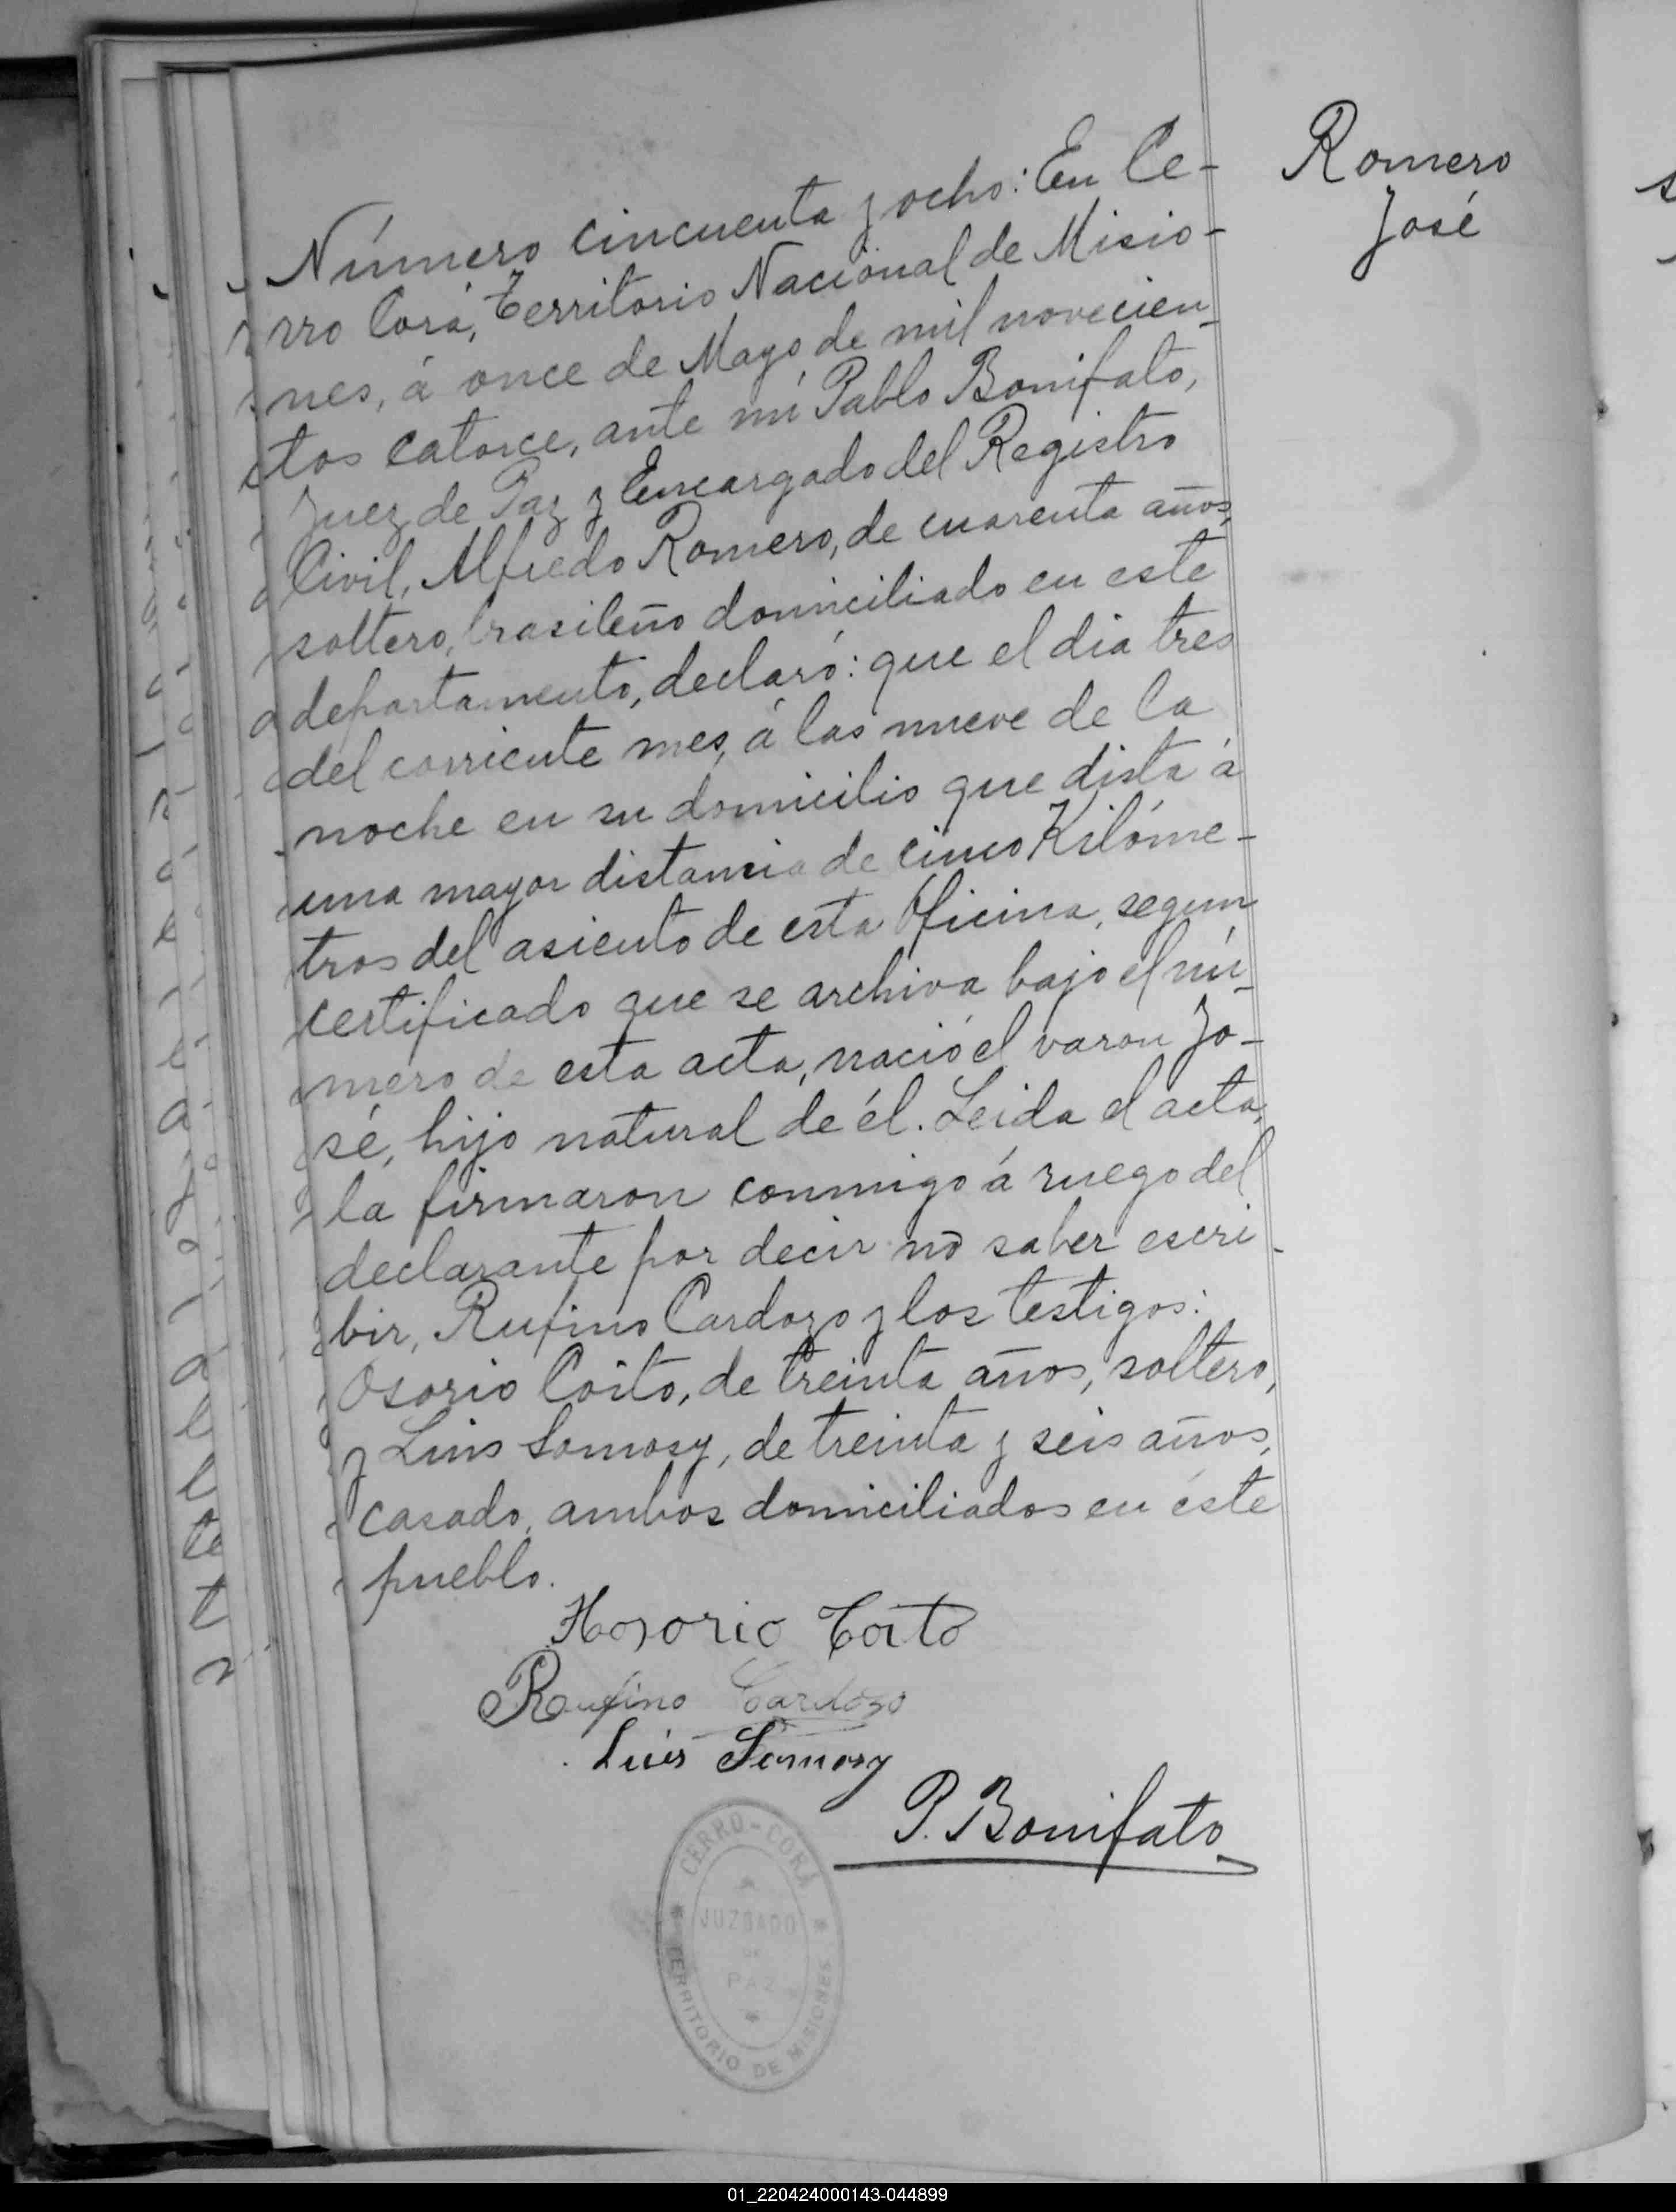 Romero
José
Número cincuenta y ocho: En Ce-
rro Corá, Territorio Nacional de Misio-
nes, á once de Mayo de mil novecien-
tos catorce, ante mi Pablo Bonifato,
Juez de Paz y Encargado del Registro
Civil, Alfredo Romero, de cuarenta años,
soltero, brasileño domiciliado en este
departamento, declaró: que el dia tres
del corriente mes, á las nueve de la
noche en su domicilio que dista á
una mayor distancia de cinco Kilóme-
tros del asiento de esta Oficina, segun
certificado que se archiva bajo el nú-
mero de esta acta, nació el varon Jo-
sé, hijo natural de él. Leida el acta,
la firmaron conmigo á ruego del
declarante por decir no saber escri-
bir, Rufino Cardozo y los testigos:
Osorio Coito, de treinta años, soltero,
y Luis Somosy, de treinta y seis años,
casado, ambos domiciliados en éste
pueblo.
Hosorio Coito
Rufino Cardozo
Luis Somosy
P. Bonifato
CERRO-CORÁ
JUZGADO
DE
PAZ
TERRITORIO DE MISIONES
01_220424000143-044899